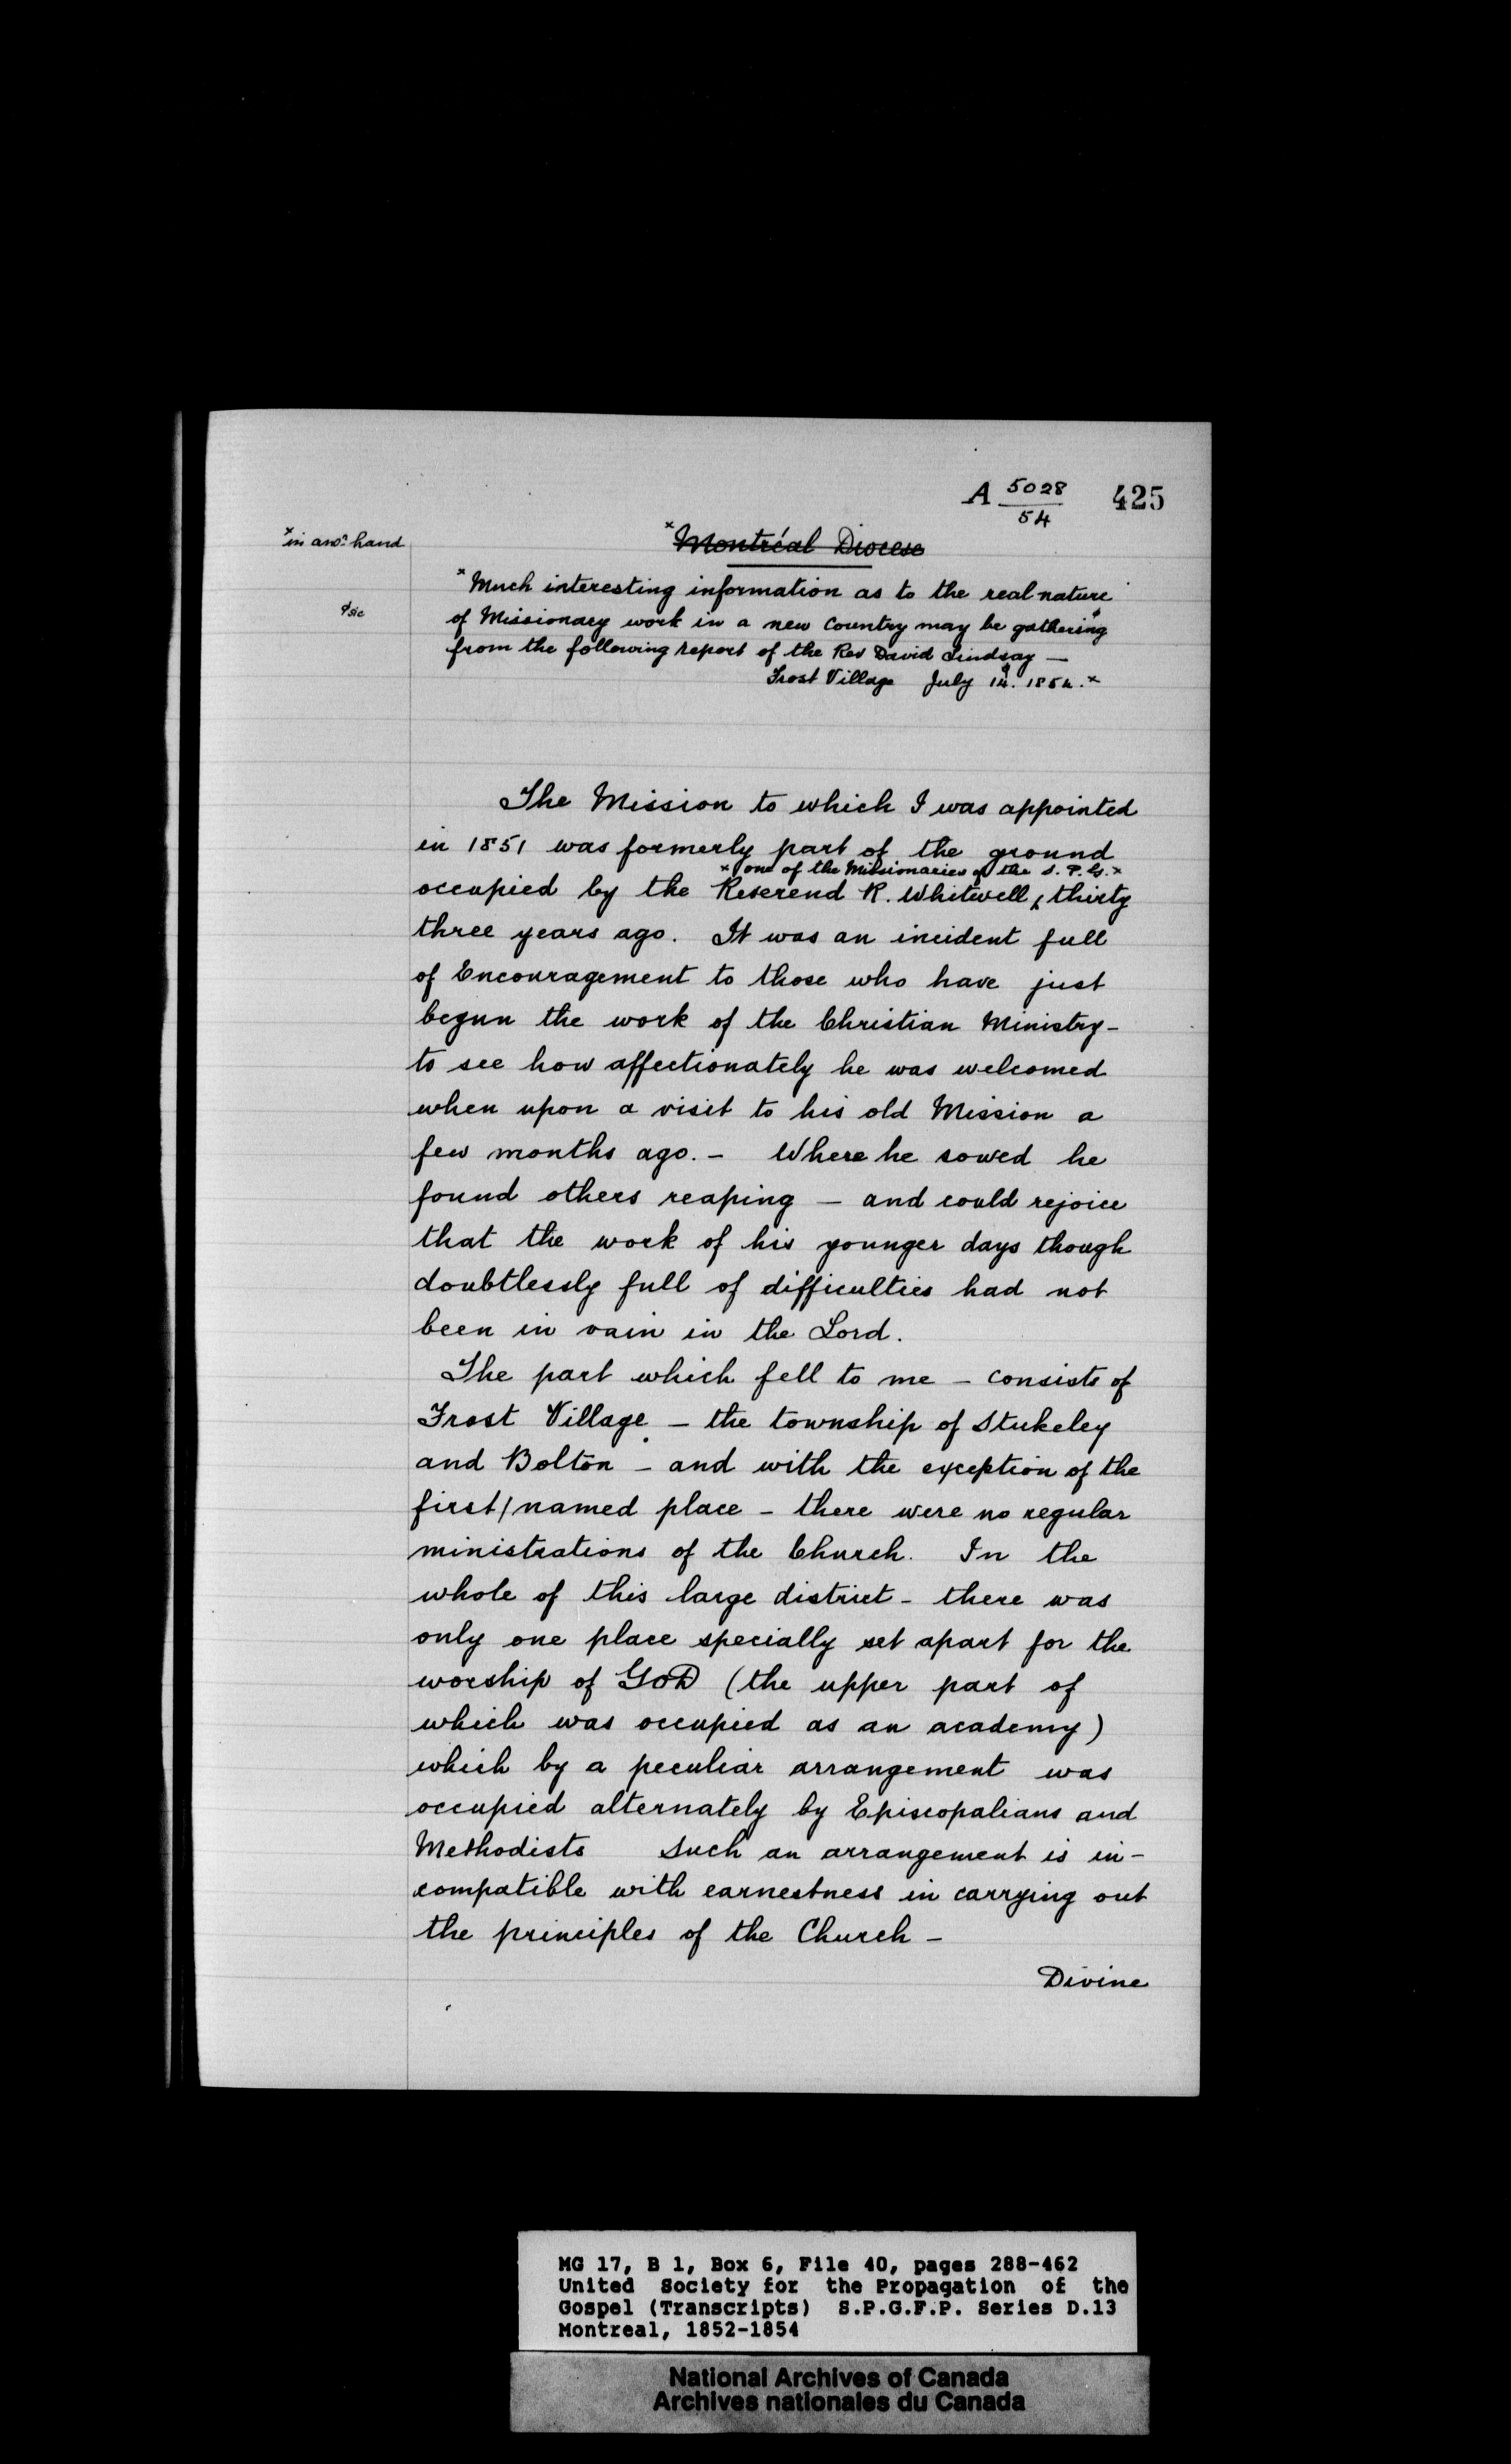 A 5028/54 425
×in ano.r hand
×Montréal Diocese
×Much interesting information as to the real nature
ϕsic
of Missionary work in a new country may be gatheringϕ
from the following report of the Rev David Lindsay —
Frost Village July 14. 1854.×
The Mission to which I was appointed
in 1851 was formerly part of the ground
× one of the Missionaries of the S. P. G. ×
occupied by the Reverend R. Whitwell, thirty
three years ago. It was an incident full
of Encouragement to those who have just
begun the work of the Christian Ministry –
to see how affectionately he was welcomed
when upon a visit to his old Mission a
few months ago. – Where he sowed he
found others reaping – and could rejoice
that the work of his younger days though
doubtlessly full of difficulties had not
been in vain in the Lord.
The part which fell to me – consists of
Frost Village – the township of Stukeley
and Bolton – and with the exception of the
first/named place – there were no regular
ministrations of the Church. In the
whole of this large district – there was
only one place specially set apart for the
worship of GOD (the upper part of
which was occupied as an academy)
which by a peculiar arrangement was
occupied alternately by Episcopalians and
Methodists Such an arrangement is in-
compatible with earnestness in carrying out
the principles of the Church –
Divine
MG 17, B 1, Box 6, File 40, pages 288-462
United Society for the Propagation of the
Gospel (Transcripts) S.P.G.F.P. Series D.13
Montreal, 1852-1854
National Archives of Canada
Archives nationales du Canada